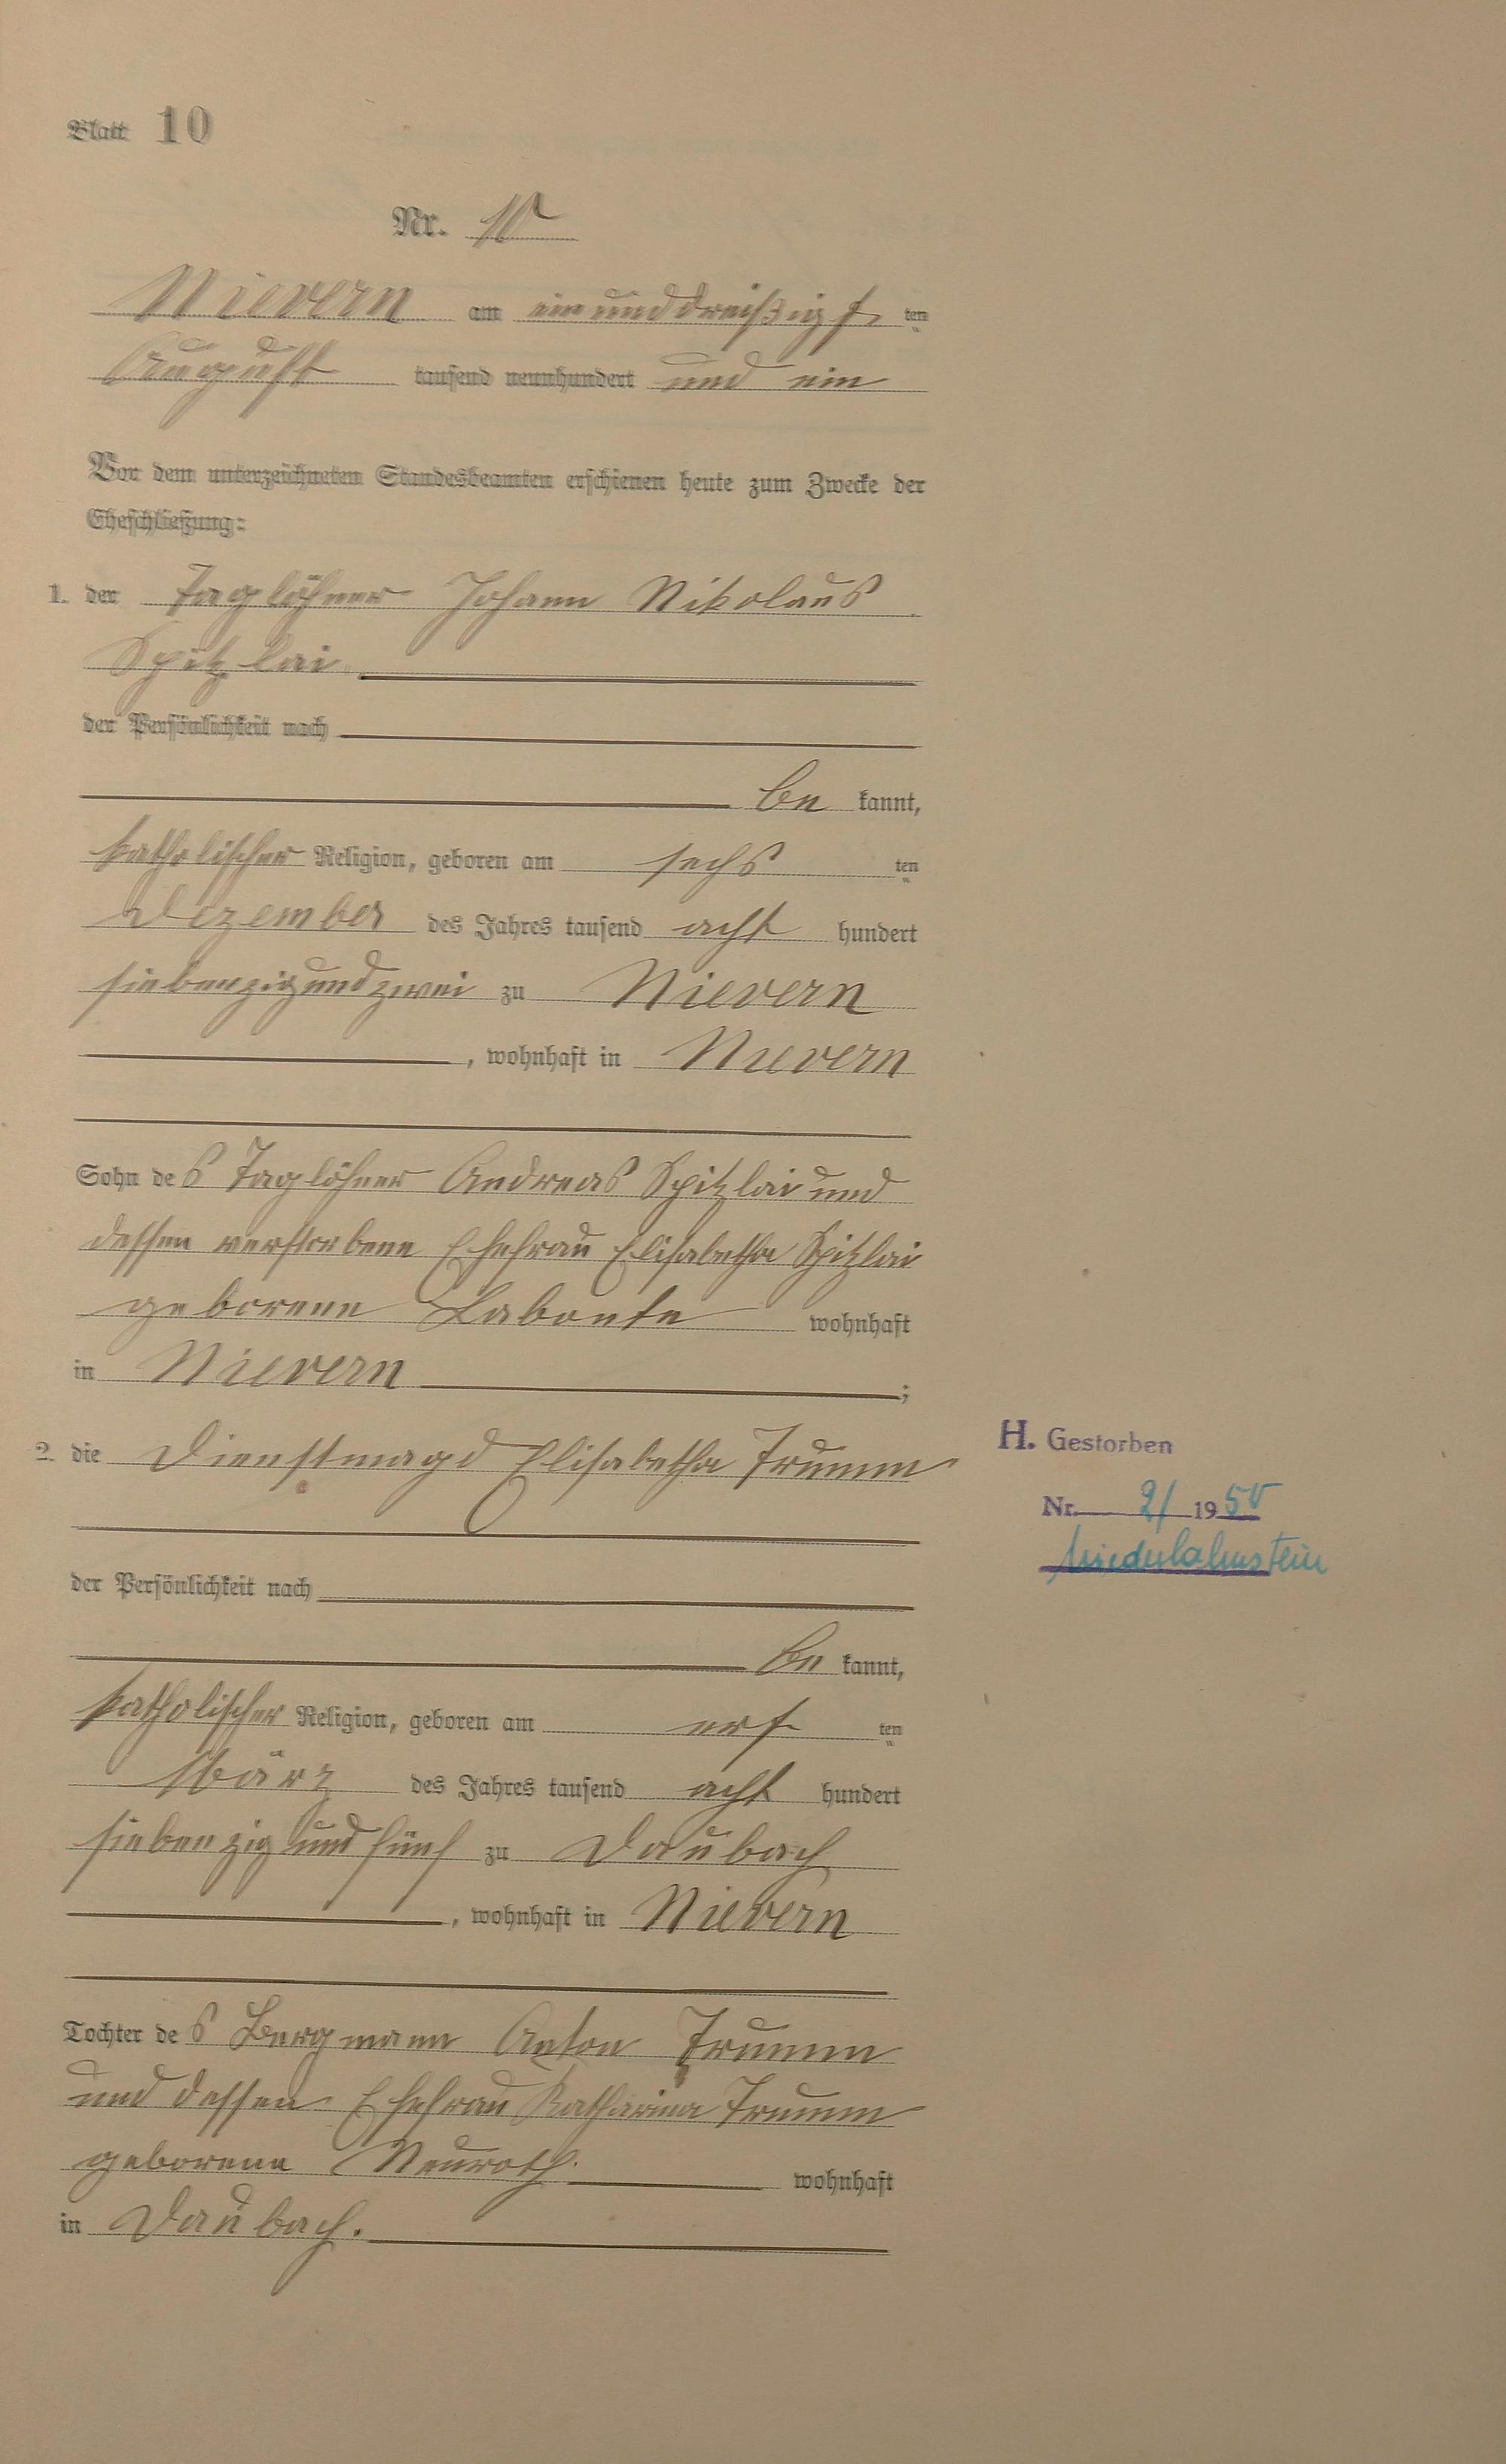 Blatt 10
Nr. 10
Nievern am einunddreißigs ten
August tausend neunhundert und ein
Vor dem unterzeichneten Standesbeamten erschienen heute zum Zwecke der
Eheschließung:
1. der Taglöhner Johann Nikolaus
Spitzlai
der Persönlichkeit nach
be kannt,
katholischer Religion, geboren am sechs ten
Dezember des Jahres tausend acht hundert
siebenzigundzwei zu Nievern
, wohnhaft in Nievern
Sohn des Taglöhner Andreas Spitzlai und
dessen verstorbene Ehefrau Elisabetha Spitzlai
geborene Labonte wohnhaft
in Nievern ;
2. die Dienstmagd Elisabetha Trumm
H. Gestorben
Nr. 2/ 1950
Niederlahnstein
der Persönlichkeit nach
be kannt,
katholischer Religion, geboren am ers ten
März des Jahres tausend acht hundert
siebenzig und fünf zu Daubach
, wohnhaft in Nievern
Tochter des Bergmann Anton Trumm
und dessen Ehefrau Katharina Trumm
geborene Neuroth wohnhaft
in Daubach.